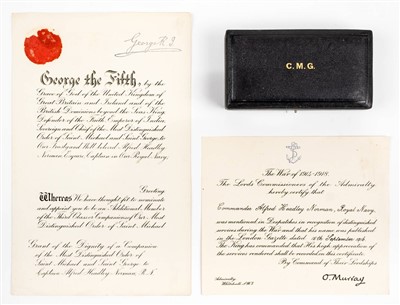 George R.I.
George the Fifth, by the
Grace of God of the United Kingdom of
Great Britain and Ireland and of the
British Dominions beyond the Seas King,
Defender of the Faith, Emperor of India,
Sovereign and Chief of the Most Distinguished
Order of Saint Michael and Saint George to
Our Trusty and Well beloved Alfred Headley
Norman, Esquire, Captain in Our Royal Navy,
Greeting
Whereas We have thought fit to nominate
and appoint you to be an Additional Member
of the Third Class or Companion of Our Most
Distinguished Order of Saint Michael
Grant of the Dignity of a Companion
of the Most Distinguished Order of
Saint Michael and Saint George to
Captain Alfred Headley Norman, R.N.
C.M.G.
The War of 1914-1918.
The Lords Commissioners of the Admiralty
hereby certify that
Commander Alfred Headley Norman, Royal Navy,
was mentioned in Despatches in recognition of distinguished
services during the War and that his name was published
in the London Gazette dated September
The King has commanded that His high appreciation of the
services rendered shall be recorded in this certificate.
By Command of Their Lordships
O. Murray
Admiralty
Whitehall